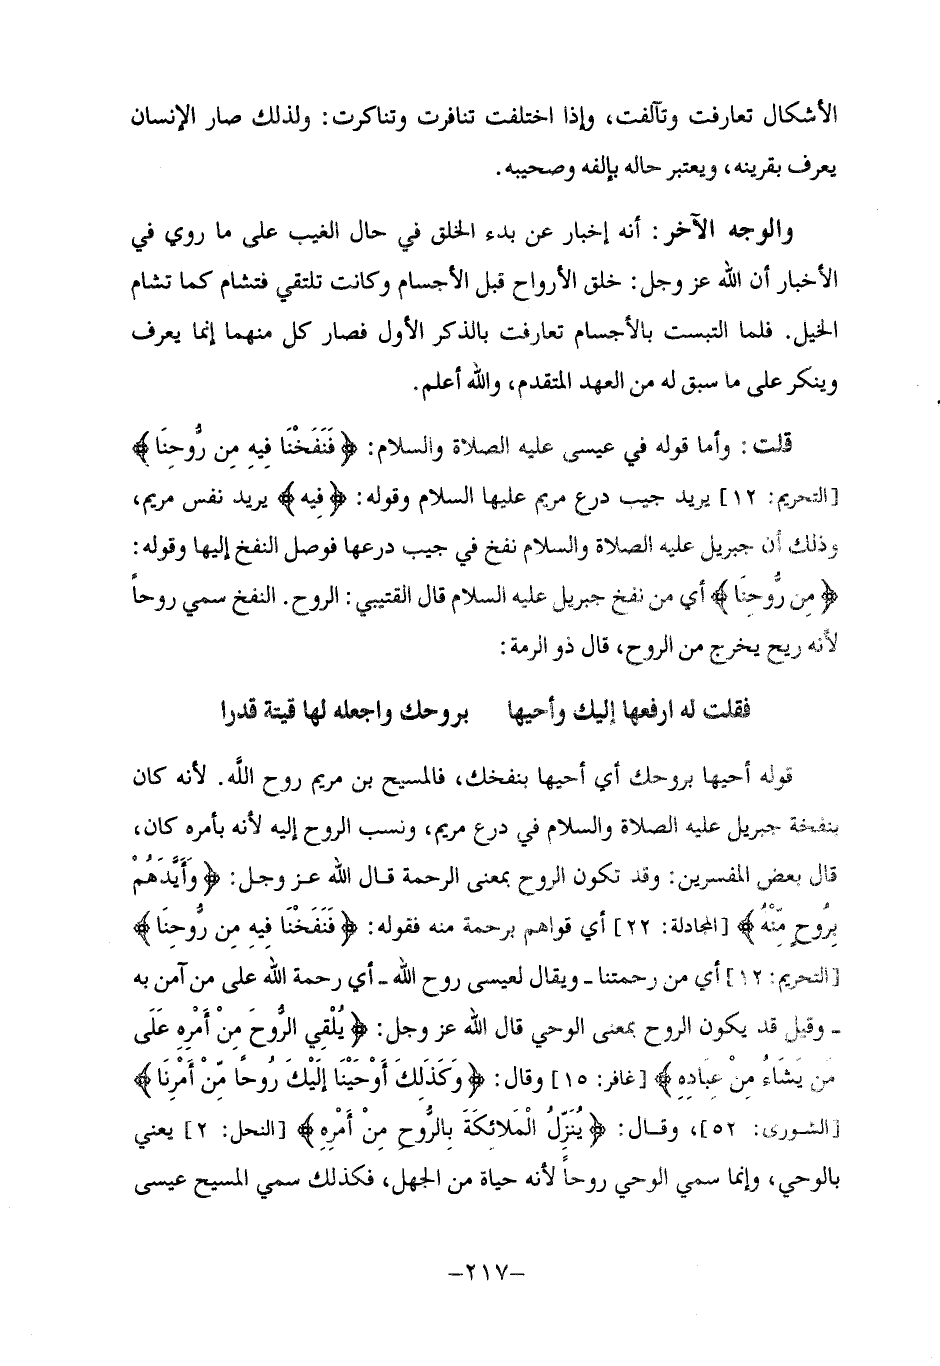 الأشكال تعارفت وتآلفت، وإذا اختلفت تنافرت وتناكرت: ولذلك صار الإنسان
يعرف بقرينه، ويعتبر حاله بإلفه وصحيبه.
والوجه الآخر: أنه إخبار عن بدء الخلق في حال الغيب على ما روي في
الأخبار أن الله عز وجل: خلق الأرواح قبل الأجسام وكانت تلتقي فتشام كما تشام
الخيل. فلما التبست بالأجسام تعارفت بالذكر الأول فصار كل منهما إنما يعرف
وينكر على ما سبق له من العهد المتقدم، والله أعلم.
قلت: وأما قوله في عيسى عليه الصلاة والسلام: ﴿فَنَفَخْنَا فِيهِ مِن رُّوحِنَا﴾
[التحريم: ١٢] يريد جيب درع مريم عليها السلام وقوله: ﴿فيه﴾ يريد نفس مريم،
وذلك أن جبريل عليه الصلاة والسلام نفخ في جيب درعها فوصل النفخ إليها وقوله:
﴿مِن رُّوحِنَا﴾ أي من نفخ جبريل عليه السلام قال القتيبي: الروح. النفخ سمي روحاً
لأنه ريح يخرج من الروح، قال ذو الرمة:
فقلت له ارفعها إليك وأحيها بروحك واجعله لها قيتة قدرا
قوله أحيها بروحك أي أحيها بنفخك، فالمسيح بن مريم روح اللَّه. لأنه كان
بنفخة جبريل عليه الصلاة والسلام في درع مريم، ونسب الروح إليه لأنه بأمره كان،
قال بعض المفسرين: وقد تكون الروح بمعنى الرحمة قال الله عز وجل: ﴿وَأَيَّدَهُمْ
بِرُوحٍ مِّنْهُ﴾ [المجادلة: ٢٢] أي قواهم برحمة منه فقوله: ﴿فَنَفَخْنَا فِيهِ مِن رُّوحِنَا﴾
[التحريم: ١٢] أي من رحمتنا ـ ويقال لعيسى روح الله ـ أي رحمة الله على من آمن به
ـ وقيل قد يكون الروح بمعنى الوحي قال الله عز وجل: ﴿يُلْقِي الرُّوحَ مِنْ أَمْرِهِ عَلَى
مَن يَشَاءُ مِنْ عِبَادِهِ﴾ [غافر: ١٥] وقال: ﴿وَكَذَلِكَ أَوْحَيْنَا إِلَيْكَ رُوحًا مِّنْ أَمْرِنَا﴾
[الشورى: ٥٢]، وقال: ﴿يُنَزِّلُ الْمَلائِكَةَ بِالرُّوحِ مِنْ أَمْرِهِ﴾ [النحل: ٢] يعني
بالوحي، وإنما سمي الوحي روحاً لأنه حياة من الجهل، فكذلك سمي المسيح عيسى
-٢١٧-